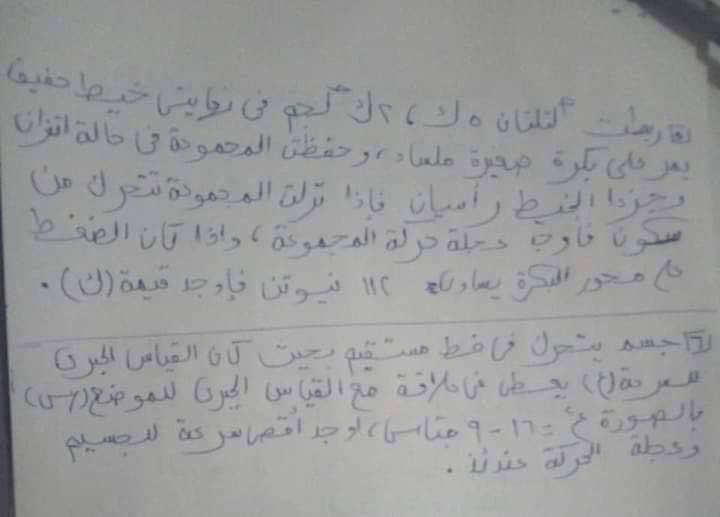 ربطت كتلتان ٥ ك ، ٢ ك كجم فى نهايتى خيط خفيف
يمر على بكرة صغيرة ملساء ، وحفظت المجموعة فى حالة اتزان
وجزءا الخيط رأسيان فإذا تركت المجموعة تتحرك من
سكون فأوجد عجلة حركة المجموعة ، وإذا كان الضغط
على محور البكرة يساوى ١١٢ نيوتن فأوجد قيمة (ك) .
جسم يتحرك فى خط مستقيم بحيث كان القياس الجبرى
للسرعة (ع) يعطى فى علاقة مع القياس الجبرى للموضع (س)
بالصورة ع٢ = ١٦ - ٩ جتاس ، اوجد أقصى سرعة للجسيم
وعجلة الحركة عندئذ .